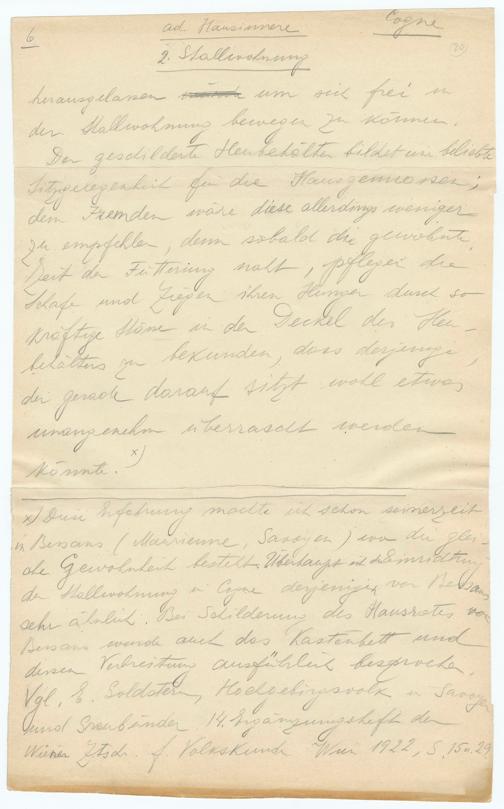 6
ad. Hausinnere
Cogne
(20)
2. Stallwohnung
herausgelassen um sich frei in
der Stallwohnung bewegen zu können.
Der geschilderte Heubehälter bildet eine beliebte
Sitzgelegenheit für die Hausgenossen;
dem Fremden wäre diese allerdings weniger
zu empfehlen, denn sobald die gewohnte
Zeit der Fütterung naht, pflegen die
Schafe und Ziegen ihren Hunger durch so
kräftige Stöße in den Deckel des Heu-
behälters zu bekunden, dass derjenige,
der gerade darauf sitzt wohl etwas
unangenehm überrascht werden
könnte. x)
x) Diese Erfahrung machte ich schon seinerzeit
in Bessans (Maurienne, Savoyen) wo die glei-
che Gewohnheit besteht. Überhaupt ist die Einrichtung
der Stallwohnung in Cogne derjenigen von Bessans
sehr ähnlich. Bei Schilderung des Hausrates von
Bessans wurde auch das Kastenbett und
dessen Verbreitung ausführlich besprochen.
Vgl. E. Goldstern, Hochgebirgsvolk in Savoyen
und Graubünden. 14. Ergänzungsheft der
Wiener Ztschr. f. Volkskunde Wien 1922, S. 15 u. 29